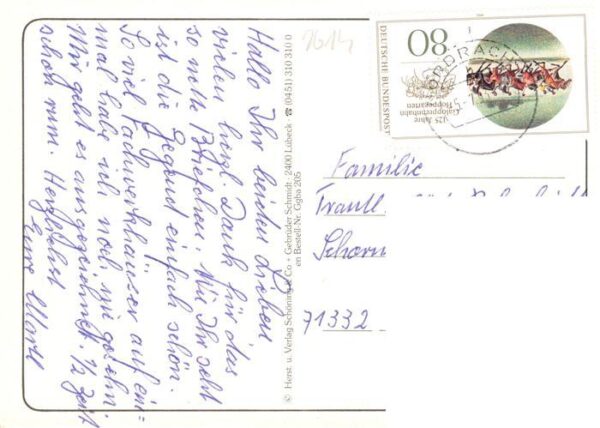 Hallo Ihr beiden Lieben
vielen herzl. Dank für das
so nette Briefchen. Wie Ihr seht
ist die Gegend einfach schön.
So viel Fachwerkhäuser auf ein=
mal habe ich noch nie gesehn.
Mir geht es ausgezeichnet. 1/2 Zeit
schon rum. Herzlichst
Eure
1614
© Herst. u. Verlag Schöning & Co + Gebrüder Schmidt · 2400 Lübeck · ☎ (0451) 310 310 0
en Bestell-Nr. Ggba 205
80
DEUTSCHE BUNDESPOST
125 Jahre
Galopprennbahn
Hoppegarten
Familie
Trautl
Schorn
71332